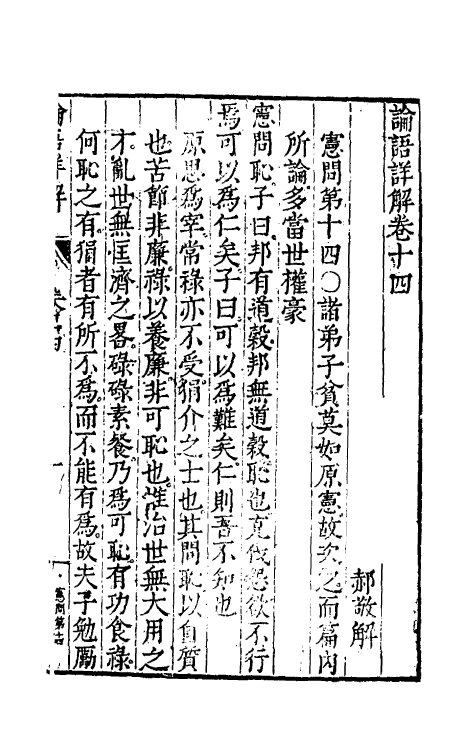 論語詳解卷十四
郝敬解
憲問第十四○諸弟子貧莫如原憲故次之而篇内
所論多當世權豪
憲問恥子曰邦有道穀邦無道穀恥也克伐怨欲不行
焉可以為仁矣子曰可以為難矣仁則吾不知也
原思為宰常祿亦不受狷介之士也其問恥以自質
也苦節非廉祿以養廉非可恥也惟治世無大用之
才亂世無匡濟之畧碌碌素餐乃為可恥有功食祿
何恥之有狷者有所不為而不能有為故夫子勉勵
論語詳解
憲問第十四